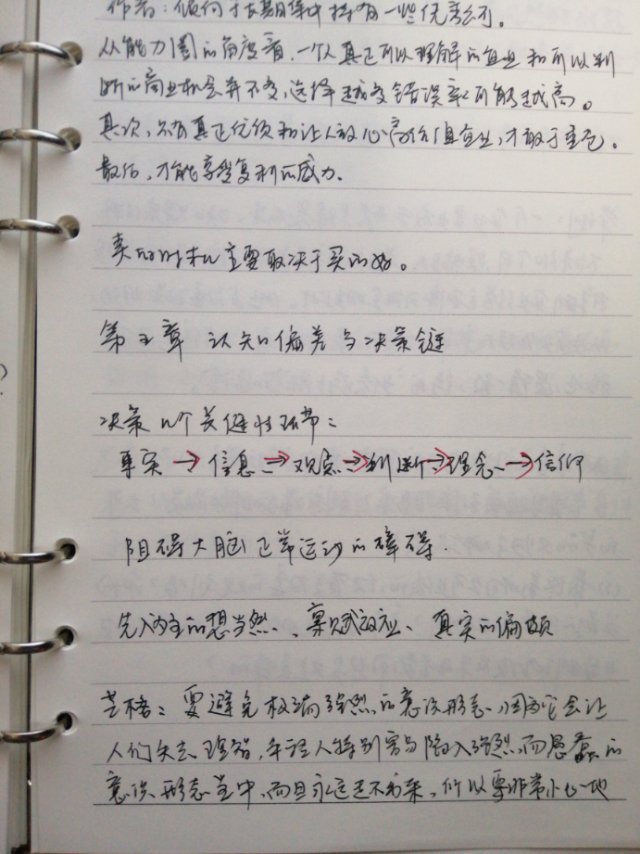 作者：倾向于长期集中持有一些优秀公司。
从能力圈的角度看，一个人真正可以理解的企业和可以判
断的商业机会并不多，选择越多错误率可能越高。
其次，只有真正优质和让人放心高价值企业，才敢于重仓。
最后，才能享受复利的威力。
卖的时机主要取决于买的好。
第五章 认知偏差与决策链
决策几个关键性环节：
事实→信息→观点→判断→理念→信仰
阻碍大脑正常运动的障碍.
先入为主的想当然、禀赋效应、真实的偏颇
芒格：要避免极端强烈的意识形态、因为它会让
人们失去理智，年轻人特别容易陷入强烈而愚蠢的
意识形态当中，而且永远走不出来，所以要非常小心地